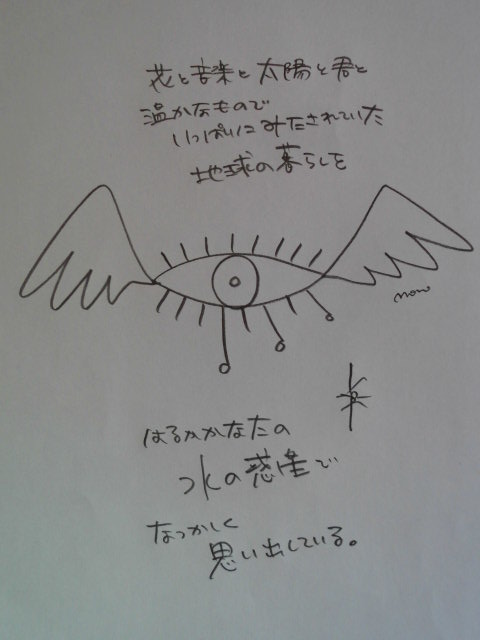 花と音楽と太陽と君と
温かなもので
いっぱいにみたされていた
地球の暮らしを
はるかかなたの
水の惑星で
なつかしく
思い出している。